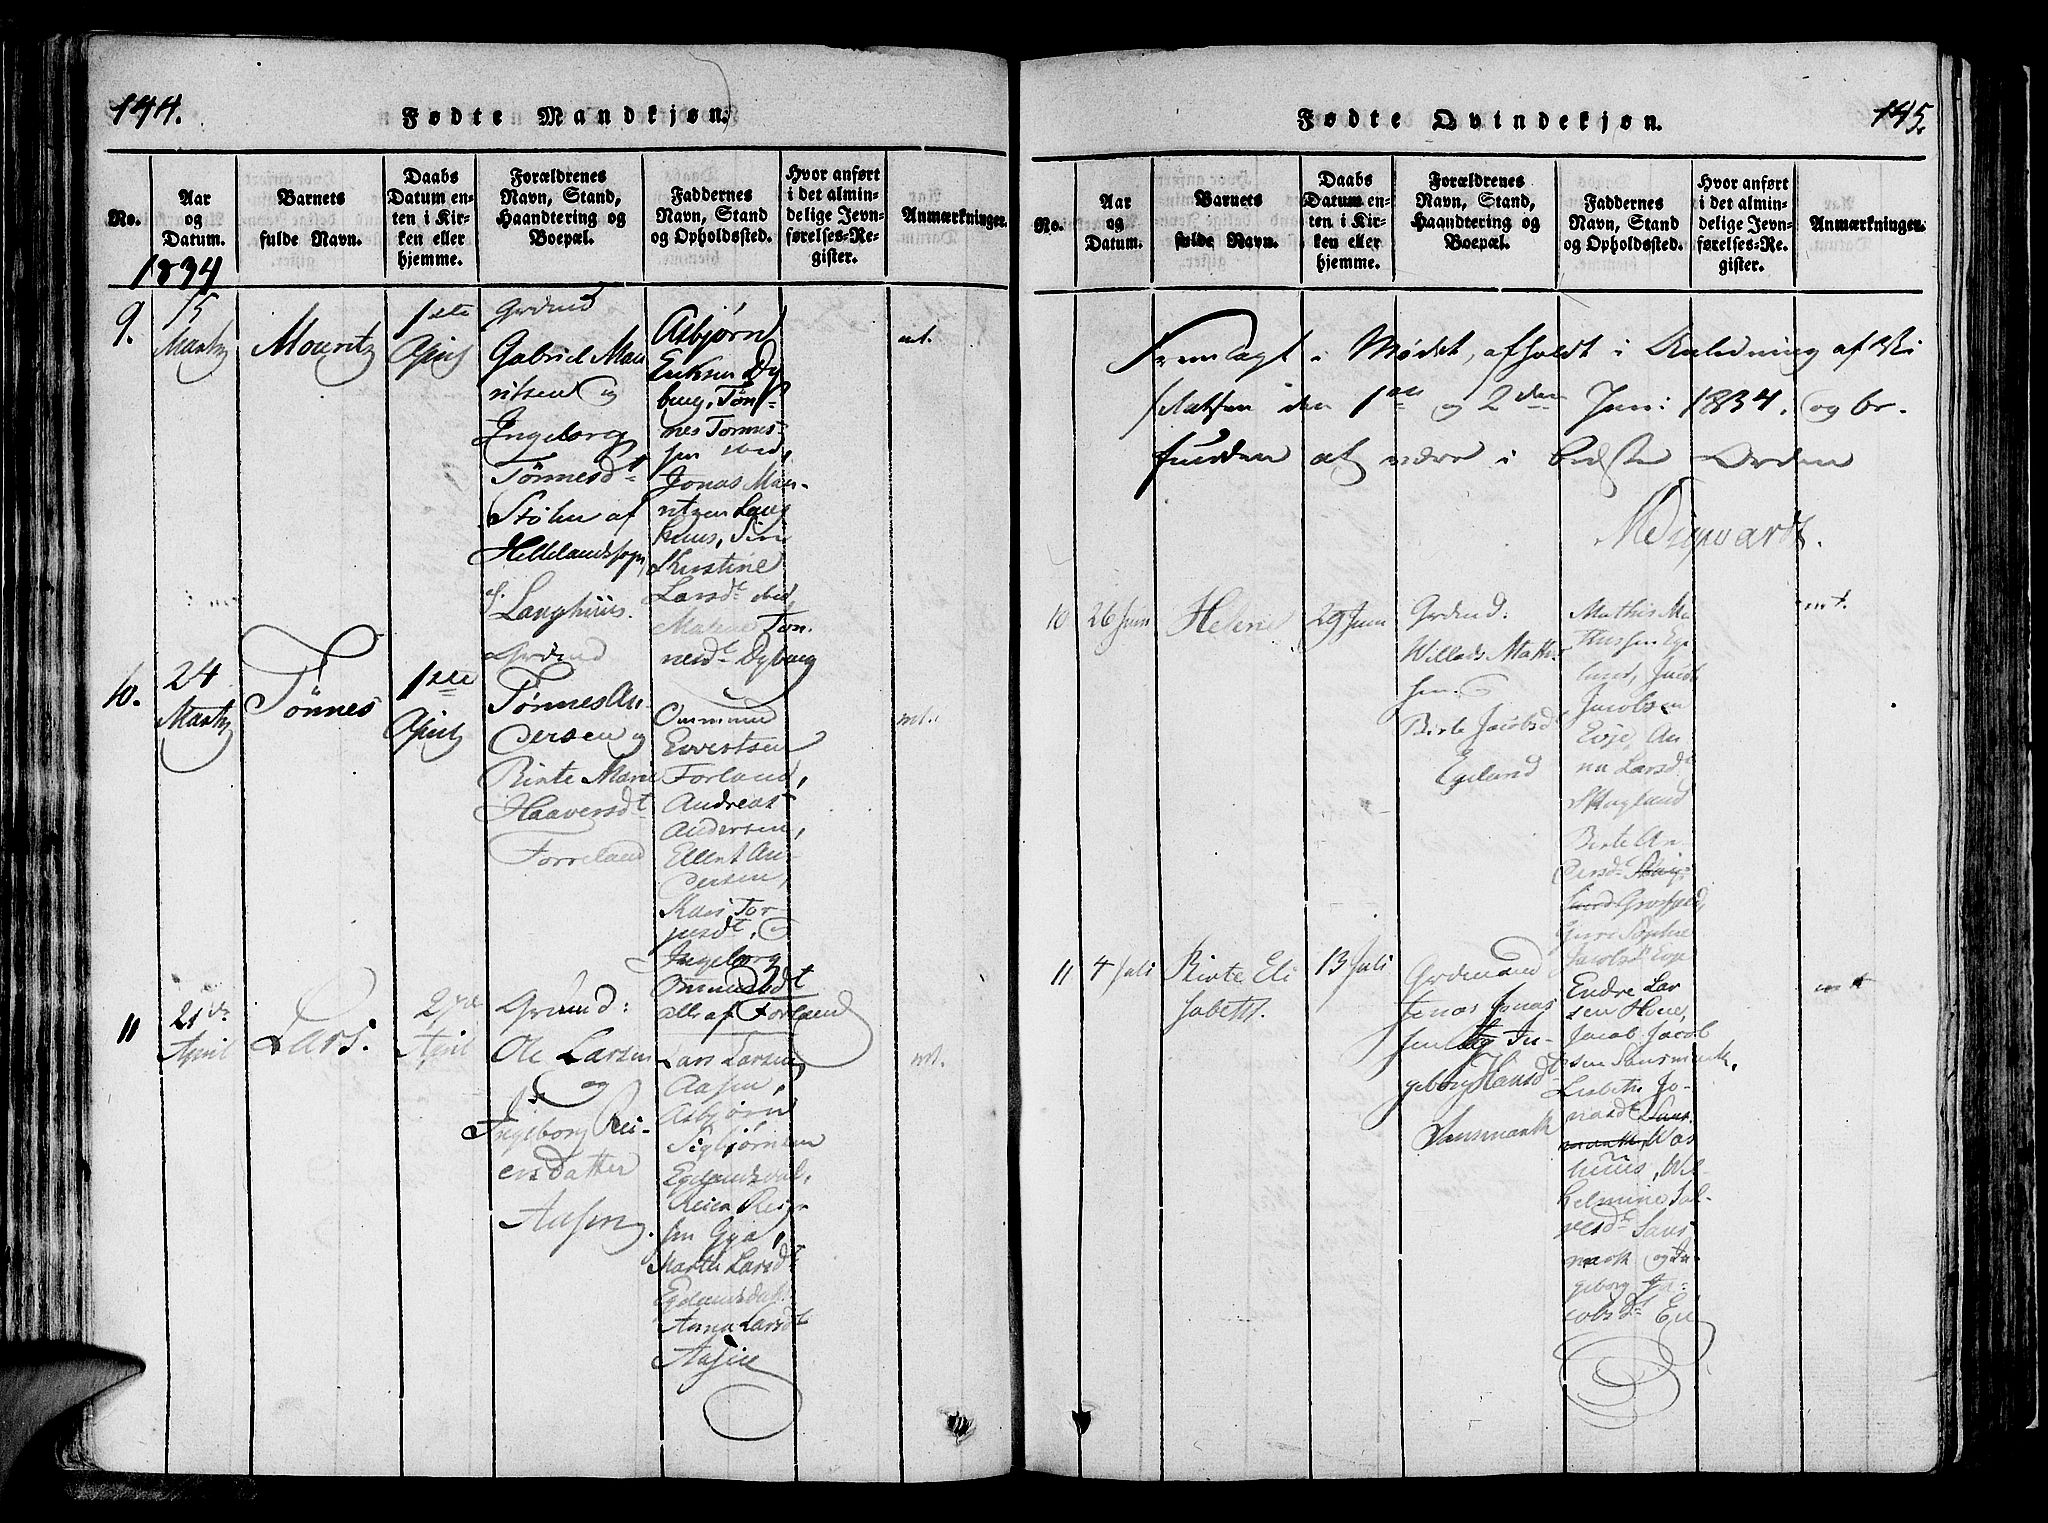 144.
Fødte Mandkjøn.
No.
Aar
og
Datum.
Barnets
fulde Navn.
Daabs
Datum en-
ten i Kir-
ken eller
hjemme.
Forældrenes
Navn, Stand,
Haandtering og
Boepæl.
Faddernes
Navn, Stand
og Opholdssted.
Hvor anført
i det almin-
delige Jevn-
førelses-Re-
gister.
Anmærkninger.
1834
9.
15
Martz
Mouritz
1ste
April
Grdmd
Gabriel Mau
ritsen og
Ingeborg
Tønnesdt
Stølen af
Hellelandssogn,
Langhuus.
Asbjørn
Eriksen Dy
burg, Tøn-
nes Tønnes-
sen ibid,
Jonas Mau-
ritzen Lang
huus,
Kirstine
Larsdt ibid
Malene Tøn
nesdt Dyburg
nt.
10.
24
Martz
Tønnes
1ste
April
Grdmd
Tønnes An
dersen og
Birte Marie
Haaversdt
Forreland
Ommund
Evertsen
Forland,
Andreas
Andersen,
Ellent An-
dersen,
Kari Tor-
jusdt, &
Ingeborg
Ommundsdt
alle af Forland
nt.
11
21de
April
Lars.
27de
April
Grdmd:
Ole Larsen
og
Ingeborg Rei-
ersdatter
Aasen.
Lars Larsen
Aasen,
Asbjørn
Sigbjørnsen
Egelandsdal,
Reier Reier
sen Gya,
Marthe Larsdt
Egelandsdal
Anna Larsdt
Aasen
nt.
145.
Fødte Qvindekjøn.
No.
Aar
og
Datum.
Barnets
fulde Navn.
Daabs
Datum en-
ten i Kir-
ken eller
hjemme.
Forældrenes
Navn, Stand,
Haandtering og
Boepæl.
Faddernes
Navn, Stand
og Opholdssted.
Hvor anført
i det almin-
delige Jevn-
førelses-Re-
gister.
Anmærkninger.
Fremlagt i Mødet, afholdt i Anledning af Vi
sitatsen den 1ste og 2den Juni 1834. og be-
funden at være i bedste Orden
10
26 Juni
Helene
29 Juni
Grdmd:
Willads Mathi
sen &
Birte Jacobsdt
Egeland
Mathis Ma
thissen Ege
land,
Jacobsen
Eeje, An
na Larsdt
Skagland
Birte An
dersdt
Guri Sophie
Jacobsdt Eeje
nt.
11
4 Juli
Birte Eli
sabeth.
13 Juli
Grdmand
Jonas Jonas
sen og In-
geborg Hansdt
Sansmark
Endre Lar
sen Hove,
Jacob Jacob
sen Sansmark,
Lisbeth Jo-
nasdt Sans-
mark, Was
huus, Wil-
helmine Sal-
vesdt Sans
mark og In-
geborg Ja-
cobsdt Eie
nt